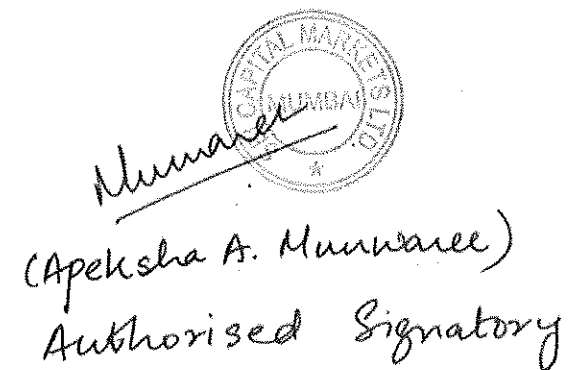 CAPITAL MARKETS LTD.
MUMBAI
(Apeksha A. Munwaree)
Authorised Signatory